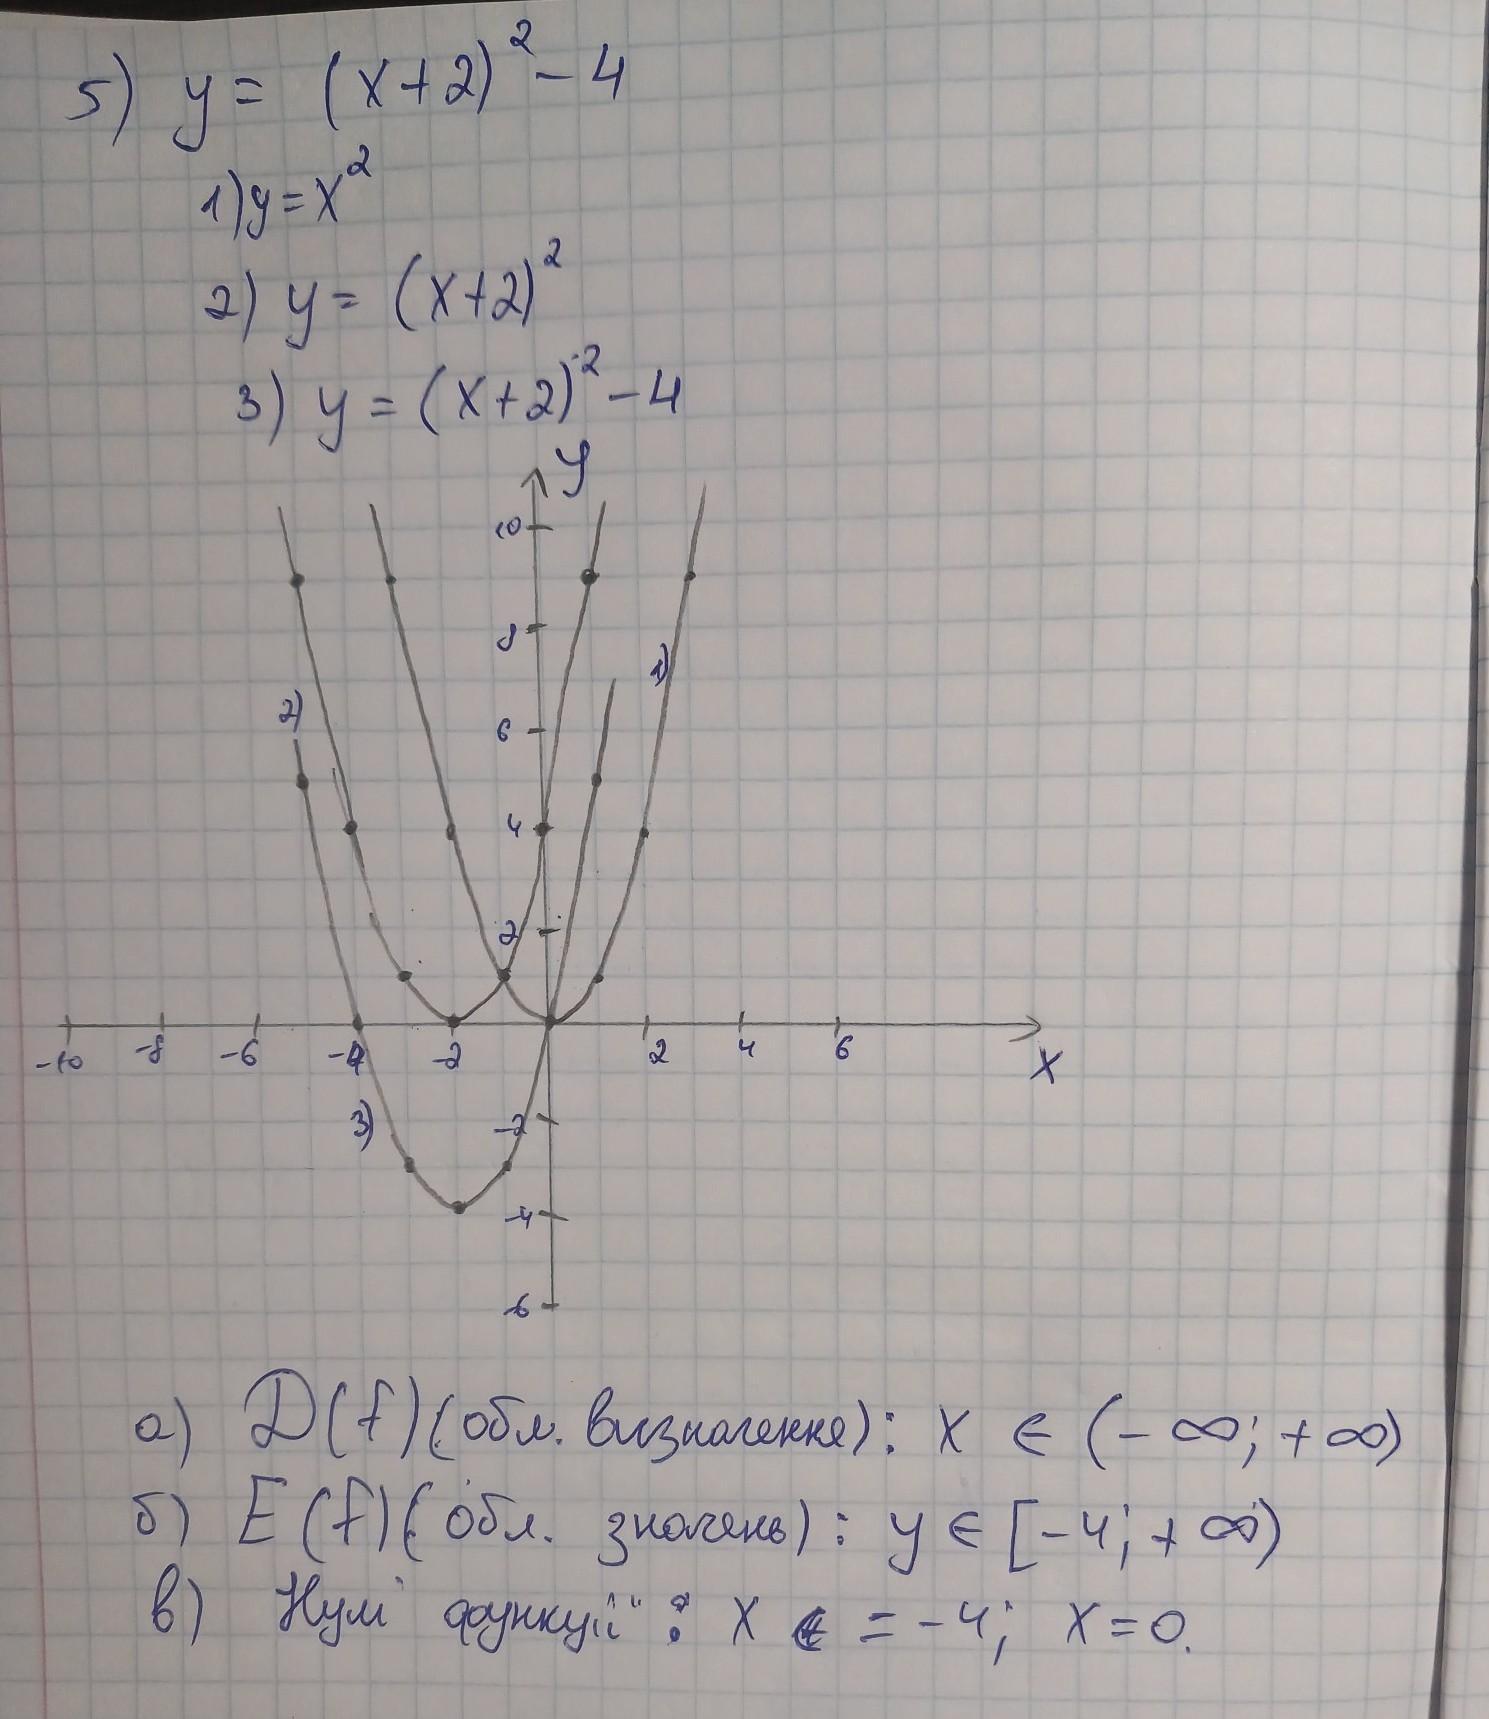 5) y = (x+2)² - 4
1) y = x²
2) y = (x+2)²
3) y = (x+2)² - 4
y
10
8
1)
2)
6
4
2
-10 -8 -6 -4 -2 2 4 6
x
3)
-2
-4
-6
а) D(f) (обл. визначення): x ∈ (-∞; +∞)
б) E(f) (обл. значень): y ∈ [-4; +∞)
в) Нулі функції: x = -4; x = 0.